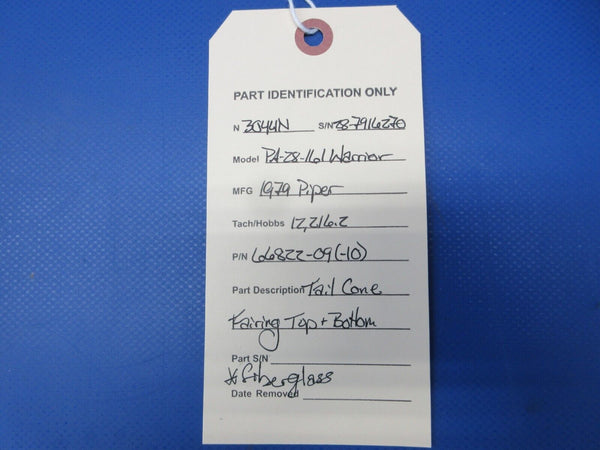 PART IDENTIFICATION ONLY
N 3044N S/N 28-7916270
Model PA-28-161 Warrior
MFG 1979 Piper
Tach/Hobbs 12,216.2
P/N 66822-09(-10)
Part Description Tail Cone
Fairing Top + Bottom
Part S/N
* fiberglass
Date Removed